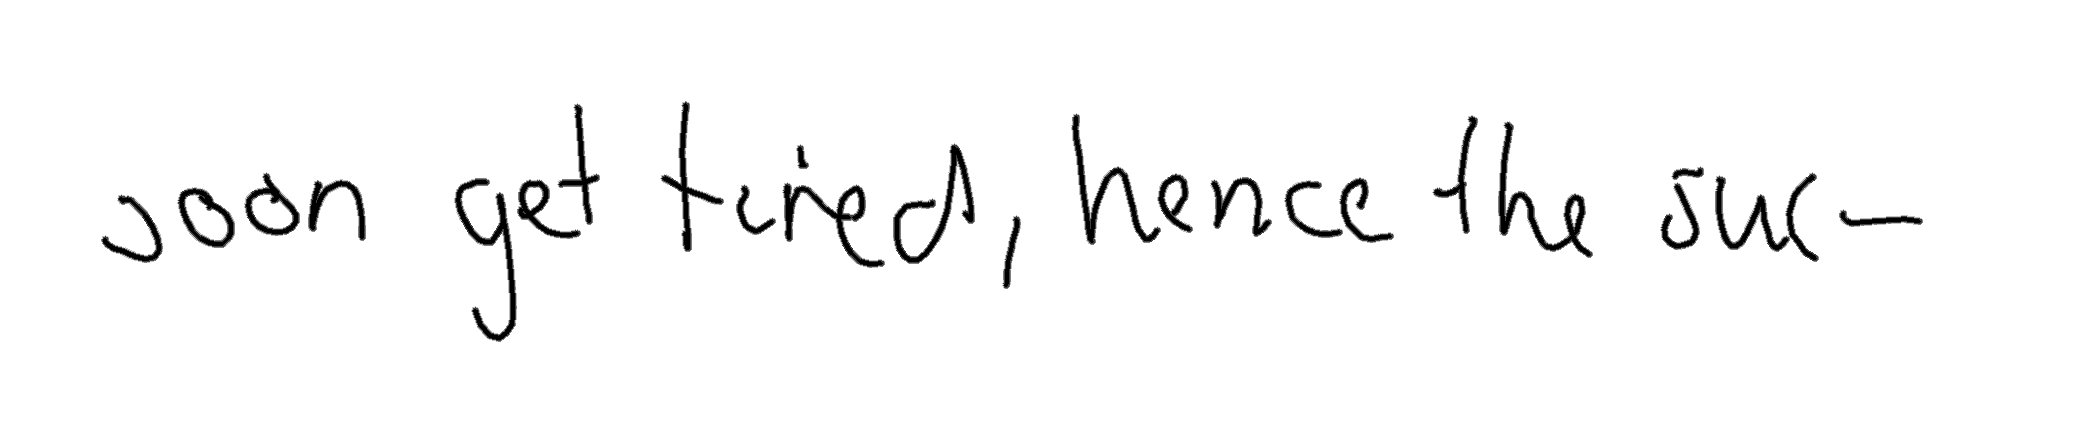 soon get tired, hence the suc-